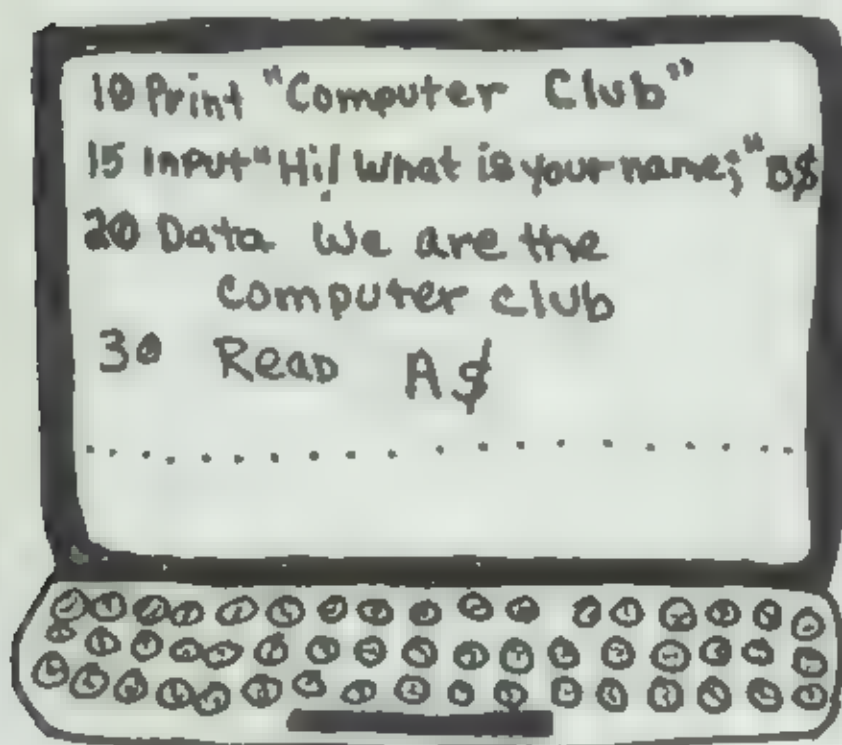 10 Print "Computer Club"
15 Input "Hi! What is your name;" B$
20 Data We are the
computer club
30 Read A$